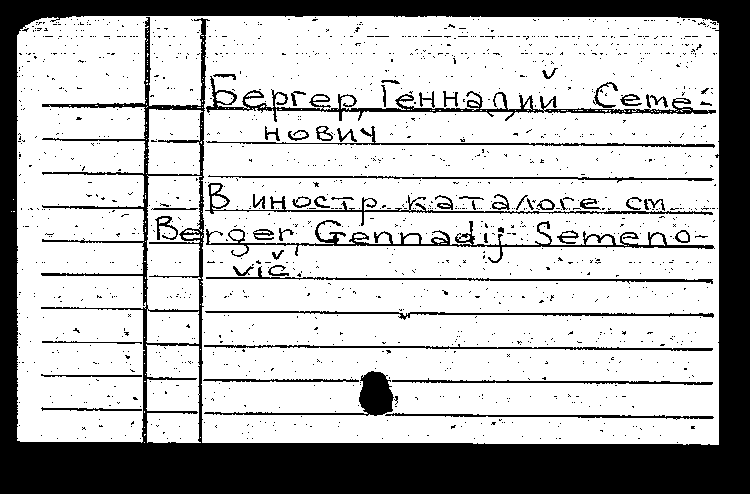 Бергер, Геннадий Семе-
нович
В иностр. каталоге см.
Berger, Gennadij Semeno-
vič.